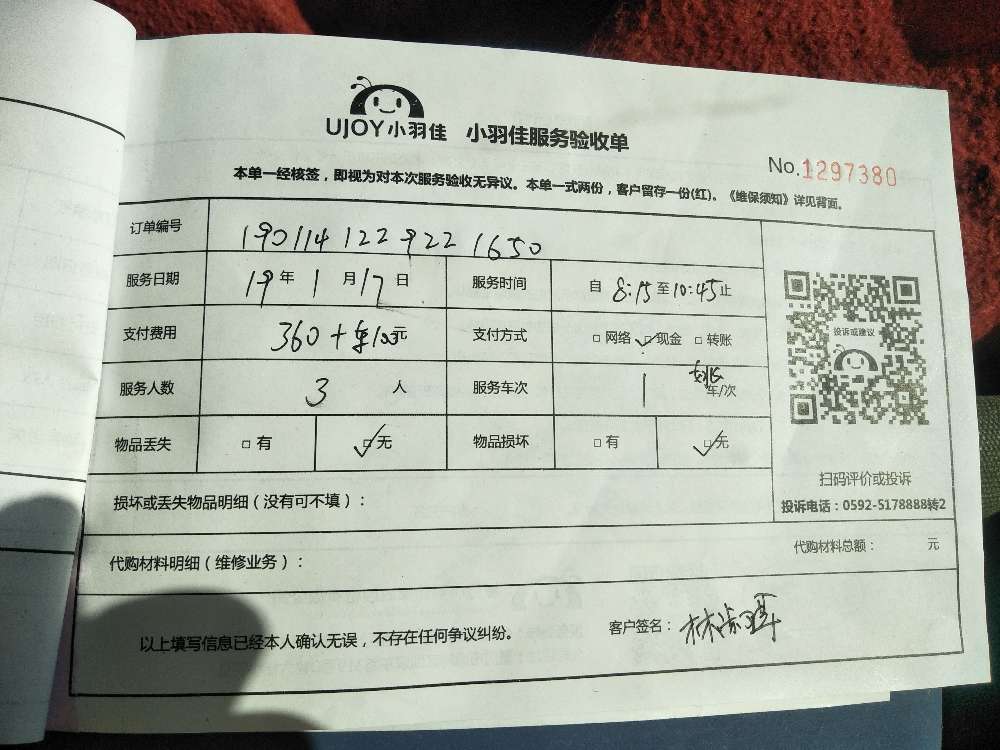 UJOY小羽佳 小羽佳服务验收单
No.1297380
本单一经核签，即视为对本次服务验收无异议。本单一式两份，客户留存一份(红)。《维保须知》详见背面。
订单编号 190114 122 922 1650
服务日期 19年 1月17日 服务时间 自8:15至10:45止
支付费用 360+ 100元 支付方式 □网络 ☑现金 □转账
服务人数 3 人 服务车次 1 车/次
物品丢失 □有 ☑无 物品损坏 □有 ☑无
投诉或建议
扫码评价或投诉
投诉电话：0592-5178888转2
损坏或丢失物品明细（没有可不填）：
代购材料明细（维修业务）： 代购材料总额： 元
以上填写信息已经本人确认无误，不存在任何争议纠纷。 客户签名：林